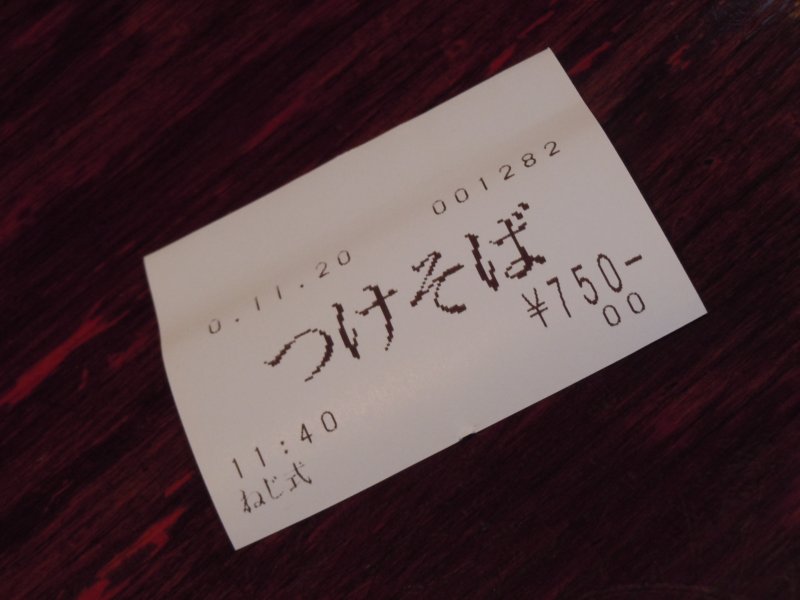 0.11.20 001282
つけそば
¥750-
00
11:40
ねじ式